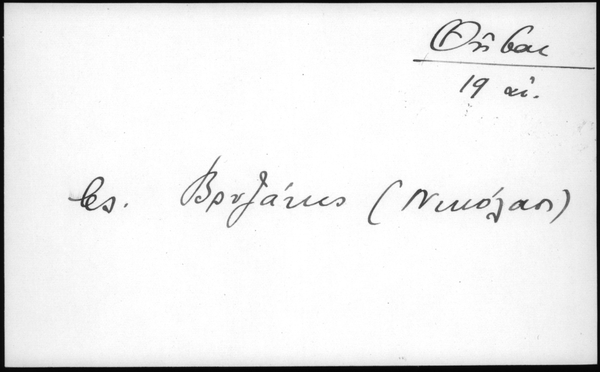 Θῆβαι
19 αἰ.
βλ. Βρυζάκης (Νικόλαος)